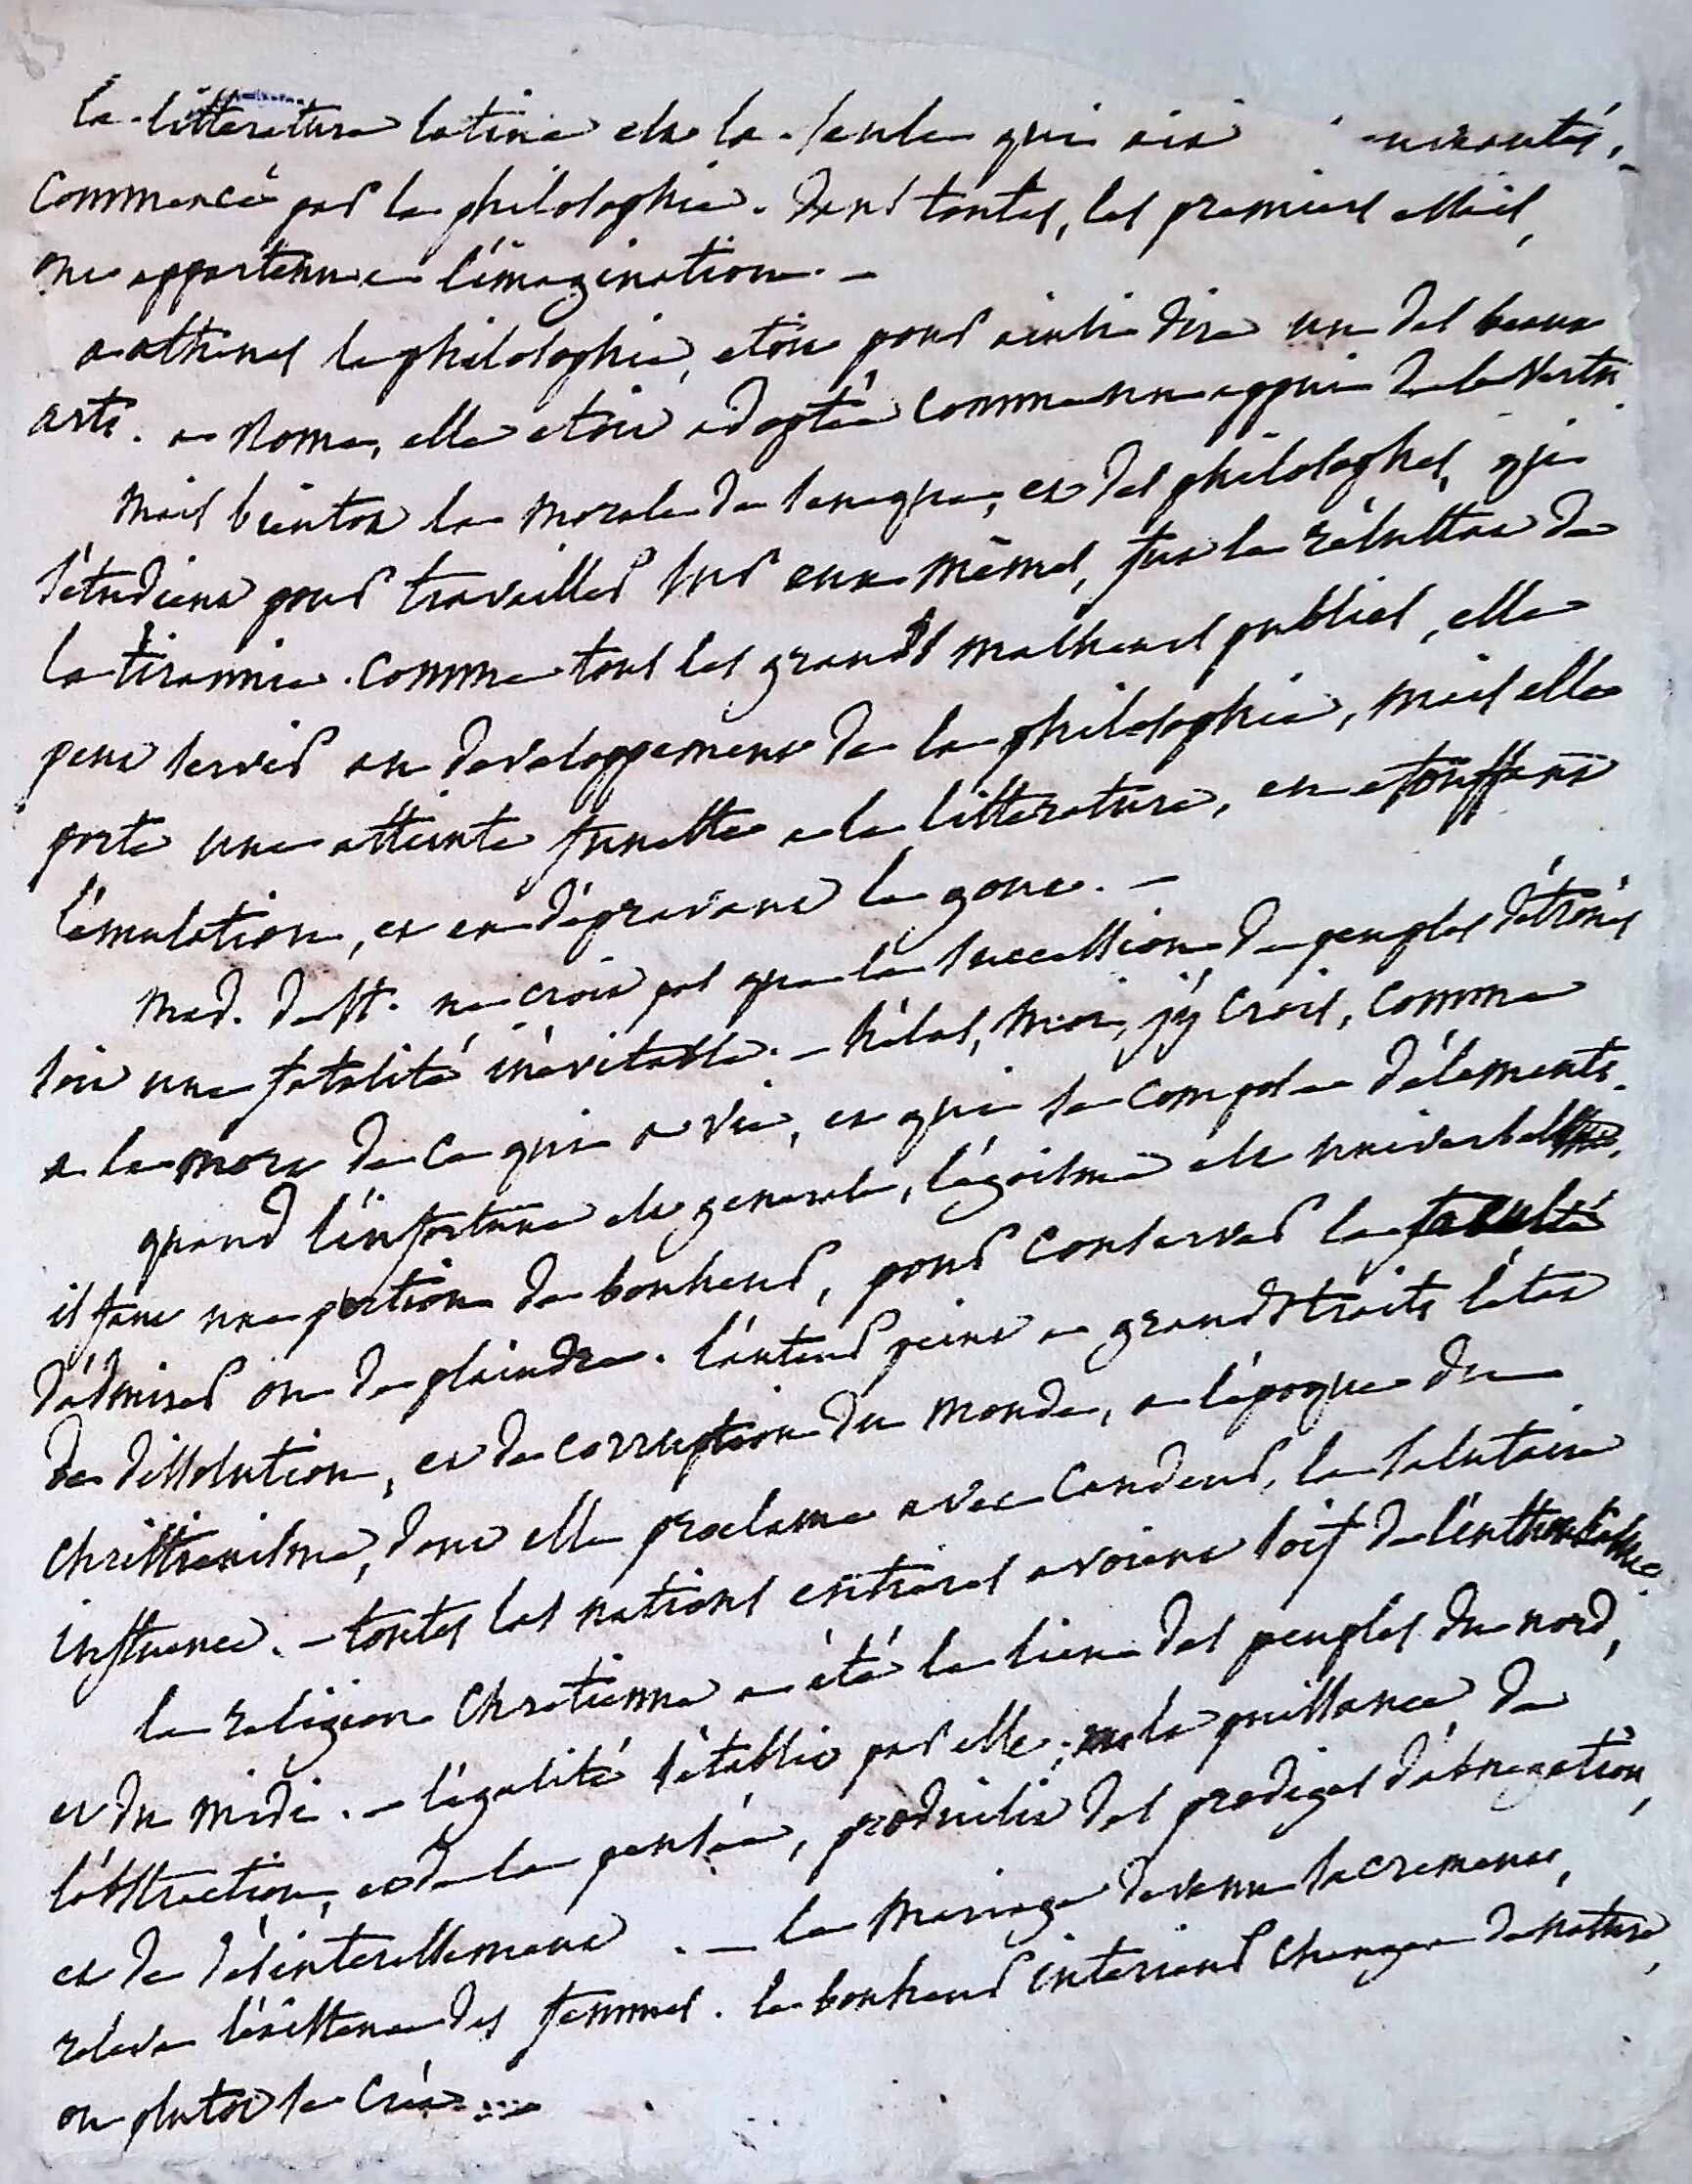 la littérature latine est la seule qui ait
commencé par la philosophie. dans toutes, les premiers essais,
ont appartenu a l'imagination. —
a athenes la philosophie, etoit pour ainsi dire un des beaux
arts. a Rome, elle etoit adoptée comme un appui de la vertu.
mais bientot la morale de seneque, et des philosophes, qui
s'étudient pour travailler sur eux mêmes, fut le résultat de
la tirannie. comme tous les grands malheurs publics, elle
peut servir au developpement de la philosophie, mais elle
porte une atteinte funeste a la litterature, en etouffant
l'émulation, et en dépravant le gout. —
Mad. de St. ne croit pas que la succession de peuples détronés
soit une fatalité inévitable. — hélas, moi, j'y crois, comme
a la mort de ce qui a vie, et qui se compose d'élements.
quand l'infortune est generale, l'égoisme est universel
il faut une portion de bonheur, pour conserver la faculté
d'admirer ou de plaindre. l'auteur peint a grands traits l'etat
de dissolution, et de corruption du monde, a l'époque du
christianisme, dont elle proclame avec candeur, la salutaire
influence. — toutes les nations entieres avoient soif de l'enthousiasme.
la religion chretienne a été le lien des peuples du nord,
et du midi. — l'égalité s'établit par elle; la puissance de
l'abstraction, et de la pensée, produisit des prodiges d'abnegation,
et de désinteressement. — le mariage devenu sacrement,
releva l'existence des femmes. le bonheur interieur changea de nature,
ou plutot se créa....